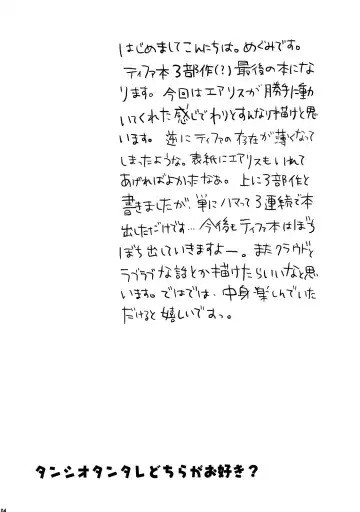 はじめましてこんにちは。めぐみです。
ティファ本3部作(?)最後の本にな
ります。今回はエアリスが勝手に動
いてくれた感じでわりとすんなり描けたと思
います。逆にティファの存在が薄くなって
しまったような。表紙にエアリスもいれて
あげればよかったなぁ。上に3部作と
書きましたが、単にハマって3連続で本
出しただけです…今後もティファ本はぼち
ぼち出していきますよー。またクラウドと
ラブラブな話とか描けたらいいなと思
います。ではでは、中身楽しんでいた
だけると嬉しいでぉっ。
タンシオタンタレどちらがお好き?
04